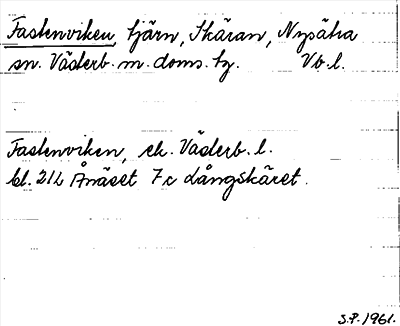 Fastenviken, tjärn, Skäran, Nysätra
sn. Västerb. m. doms. tg. Vb. l.
Fastenviken, ek. Västerb. l.
bl. 21L Ånäset 7c Långskäret.
S.P. 1961.